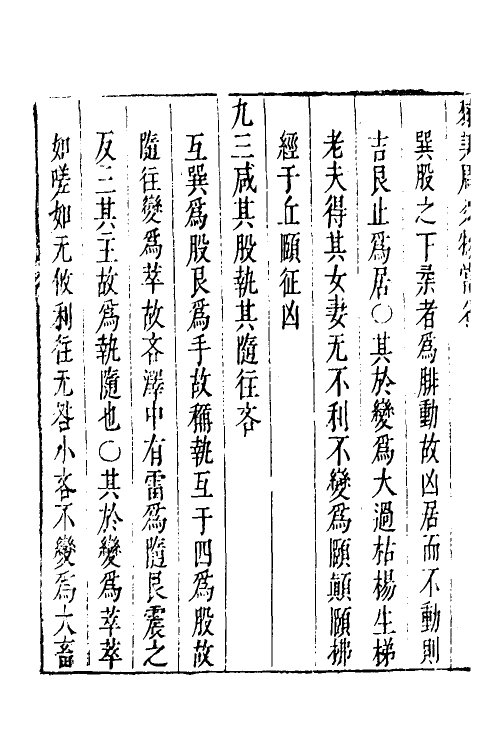 巽股之下柔者爲腓動故凶居而不動則
吉艮止爲居〇其於變爲大過枯楊生梯
老夫得其女妻无不利不變爲頤顛頤拂
經于丘頤征凶
九三咸其股執其隨往吝
互巽爲股艮爲手故稱執互于四爲股故
隨往變爲萃故吝澤中有雷爲隨艮震之
反三其主故爲執隨也〇其於變爲萃萃
如嗟如无攸利往无咎小吝不變爲大畜